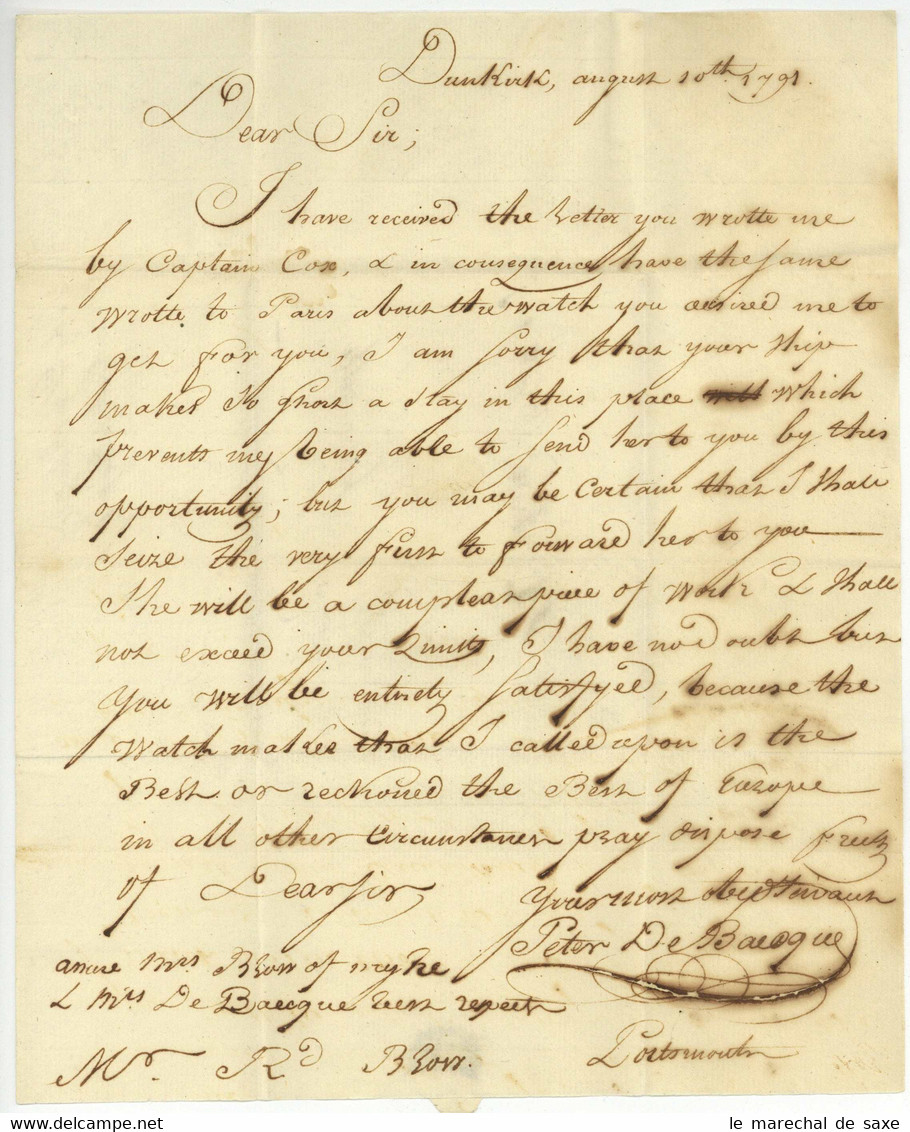 Dunkirk, august 10th 1791.
Dear Sir;
I have received the letter you wrotte me
by Captain Cox, & in consequence have the same
wrotte to Paris about the watch you desired me to
get for you, I am sorry that your ship
makes so short a stay in this place which
prevents my being able to send her to you by this
opportunity; but you may be certain that I shall
seize the very first to forward her to you
She will be a compleat piece of work & shall
not exceed your Limits, I have no doubt but
you will be entirely satisfyed, because the
Watch maker that I called upon is the
Best or reckoned the Best of Europe
in all other Circumstances pray dispose freely
of Dear sir,
Your most obed Servant
Peter De Baecque
assure Mrs Blow of my
& Mrs De Baecque best respects
Mr. Rd Blow. Portsmouth
le marechal de saxe